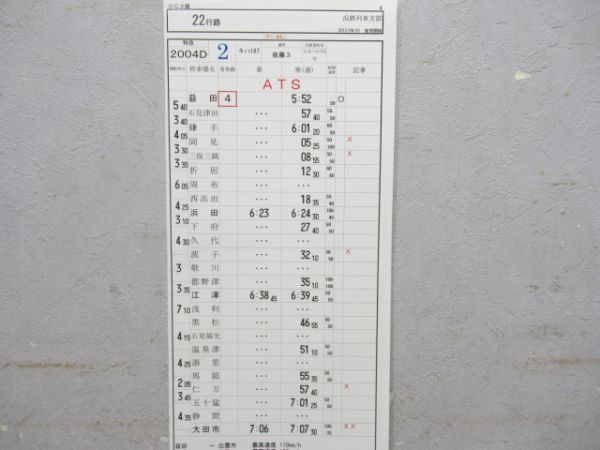 DC3組
22行路
浜鉄列車支部
特急
2004D 2 キハ187 後藤3
停車場名 着発線 着 発(過) 記事
ATS
益田 4 5:52 50 ○
5 40
石見津田 ... 57 40
3 40
鎌手 ... 6:01 20
4 05
岡見 ... 05 25 x
3 30
三保三隅 ... 08 55 x
3 35
折居 ... 12 30
6 05 周布 ... ...
西浜田 ... 18 35
4 25
浜田 6:23 6:24 30
3 10
下府 ... 27 40
4 30 久代 ... ...
波子 ... 32 10 x
3 敬川 ... ...
都野津 ... 35 10
3 35
江津 6:38 45 6:39 45
7 10 浅利 ... ...
黒松 ... 46 55
4 15 石見福光 ... ...
温泉津 ... 51 10
4 25 湯里 ... ...
馬路 ... 55 35
2 05
仁万 ... 57 40 x
3 45
五十猛 ... 7:01 25
4 35 静間 ... ...
大田市 7:06 7:07 30 xx
益田 ~ 出雲市 最高速度 110km/h